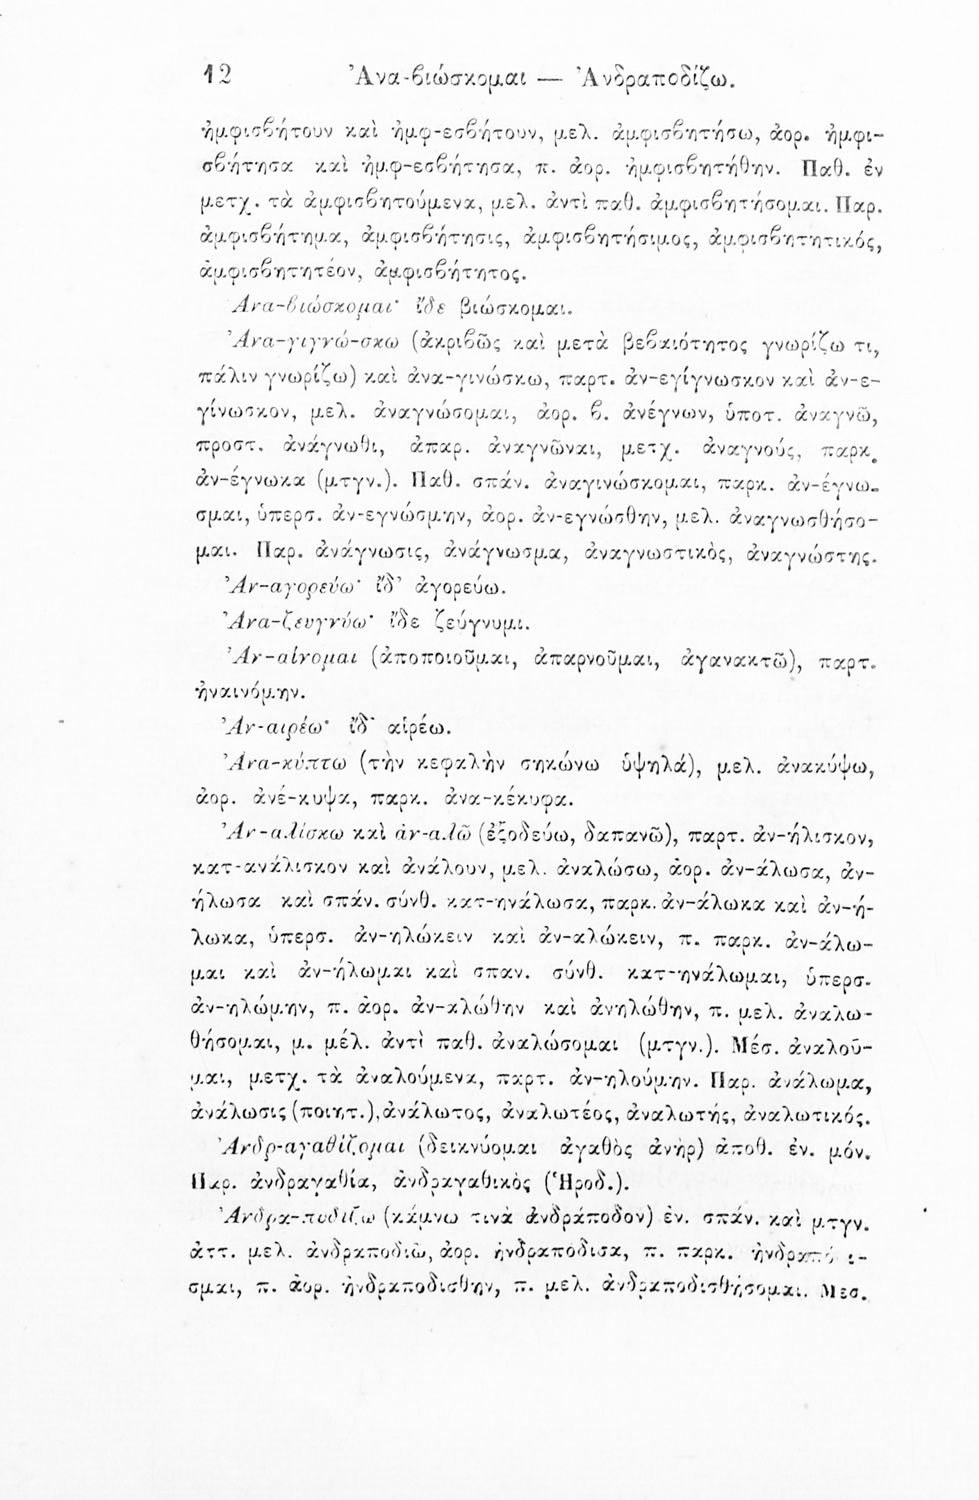 12 Ἀνα-βιώσκομαι — Ἀνδραποδίζω.
ἠμφισβήτουν καὶ ἠμφ-εσβήτουν, μελ. ἀμφισβητήσω, ἀορ. ἠμφι-
σβήτησα καὶ ἠμφ-εσβήτησα, π. ἀορ. ἠμφισβητήθην. Παθ. ἐν
μετχ. τὰ ἀμφισβητούμενα, μελ. ἀντὶ παθ. ἀμφισβητήσομαι. Παρ.
ἀμφισβήτημα, ἀμφισβήτησις, ἀμφισβητήσιμος, ἀμφισβητητικός,
ἀμφισβητητέον, ἀμφισβήτητος.
Ἀνα-βιώσκομαι· ἴδε βιώσκομαι.
Ἀνα-γιγνώ-σκω (ἀκριβῶς καὶ μετὰ βεβαιότητος γνωρίζω τι,
πάλιν γνωρίζω) καὶ ἀνα-γινώσκω, παρτ. ἀν-εγίγνωσκον καὶ ἀν-ε-
γίνωσκον, μελ. ἀναγνώσομαι, ἀορ. β. ἀνέγνων, ὑποτ. ἀναγνῶ,
προστ. ἀνάγνωθι, ἀπαρ. ἀναγνῶναι, μετχ. ἀναγνούς, παρκ.
ἀν-έγνωκα (μτγν.). Παθ. σπάν. ἀναγινώσκομαι, παρκ. ἀν-έγνω-
σμαι, ὑπερσ. ἀν-εγνώσμην, ἀορ. ἀν-εγνώσθην, μελ. ἀναγνωσθήσο-
μαι. Παρ. ἀνάγνωσις, ἀνάγνωσμα, ἀναγνωστικὸς, ἀναγνώστης.
Ἀν-αγορεύω· ἴδ' ἀγορεύω.
Ἀνα-ζευγνύω· ἴδε ζεύγνυμι.
Ἀν-αίνομαι (ἀποποιοῦμαι, ἀπαρνοῦμαι, ἀγανακτῶ), παρτ.
ἠναινόμην.
Ἀν-αιρέω· ἴδ' αἱρέω.
Ἀνα-κύπτω (τὴν κεφαλὴν σηκώνω ὑψηλά), μελ. ἀνακύψω,
ἀορ. ἀνέ-κυψα, παρκ. ἀνα-κέκυφα.
Ἀν-αλίσκω καὶ ἀν-αλῶ (ἐξοδεύω, δαπανῶ), παρτ. ἀν-ήλισκον,
κατ-ανάλισκον καὶ ἀνάλουν, μελ. ἀναλώσω, ἀορ. ἀν-άλωσα, ἀν-
ήλωσα καὶ σπάν. σύνθ. κατ-ηνάλωσα, παρκ. ἀν-άλωκα καὶ ἀν-ή-
λωκα, ὑπερσ. ἀν-ηλώκειν καὶ ἀν-αλώκειν, π. παρκ. ἀν-άλω-
μαι καὶ ἀν-ήλωμαι καὶ σπαν. σύνθ. κατ-ηνάλωμαι, ὑπερσ.
ἀν-ηλώμην, π. ἀορ. ἀν-αλώθην καὶ ἀνηλώθην, π. μελ. ἀναλω-
θήσομαι, μ. μέλ. ἀντὶ παθ. ἀναλώσομαι (μτγν.). Μέσ. ἀναλοῦ-
μαι, μετχ. τὰ ἀναλούμενα, παρτ. ἀν-ηλούμην. Παρ. ἀνάλωμα,
ἀνάλωσις (ποιητ.), ἀνάλωτος, ἀναλωτέος, ἀναλωτής, ἀναλωτικός.
Ἀνδρ-αγαθίζομαι (δεικνύομαι ἀγαθὸς ἀνήρ) ἀποθ. ἐν. μόν.
Παρ. ἀνδραγαθία, ἀνδραγαθικὸς (Ἡροδ.).
Ἀνδρα-ποδίζω (κάμνω τινὰ ἀνδράποδον) ἐν. σπάν. καὶ μτγν.
ἀττ. μελ. ἀνδραποδιῶ, ἀορ. ἠνδραπόδισα, π. παρκ.
σμαι, π. ἀορ. ἠνδραποδίσθην, π. μελ. ἀνδραποδισθήσομαι. Μεσ.